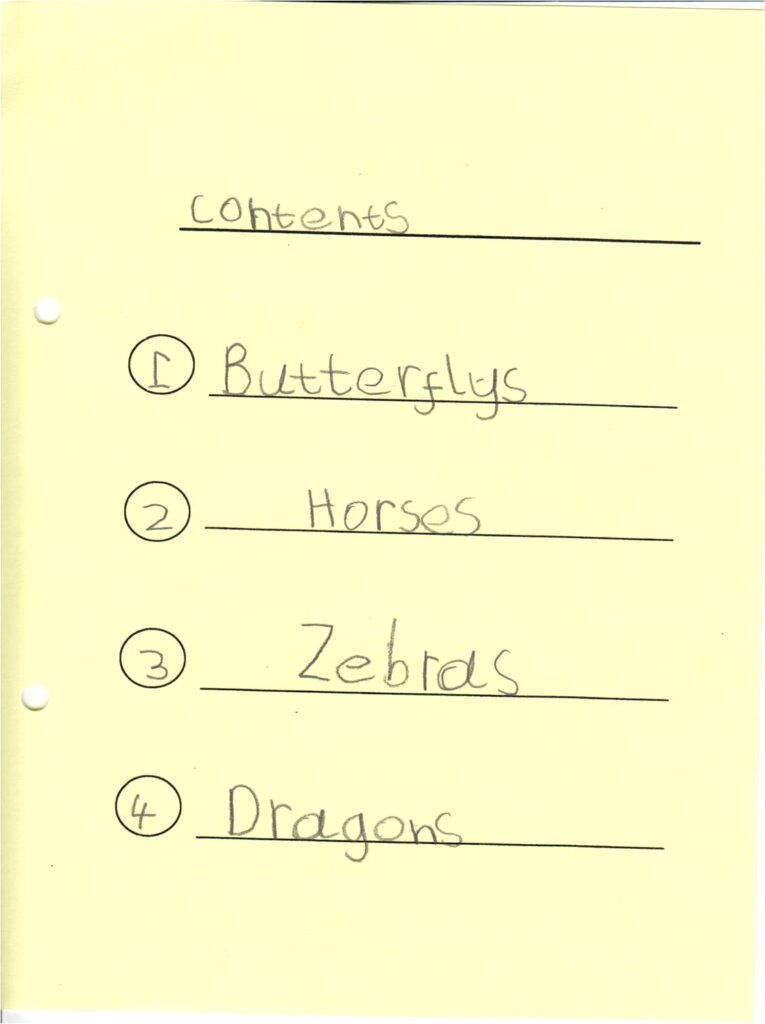 contents
1 Butterflys
2 Horses
3 Zebras
4 Dragons